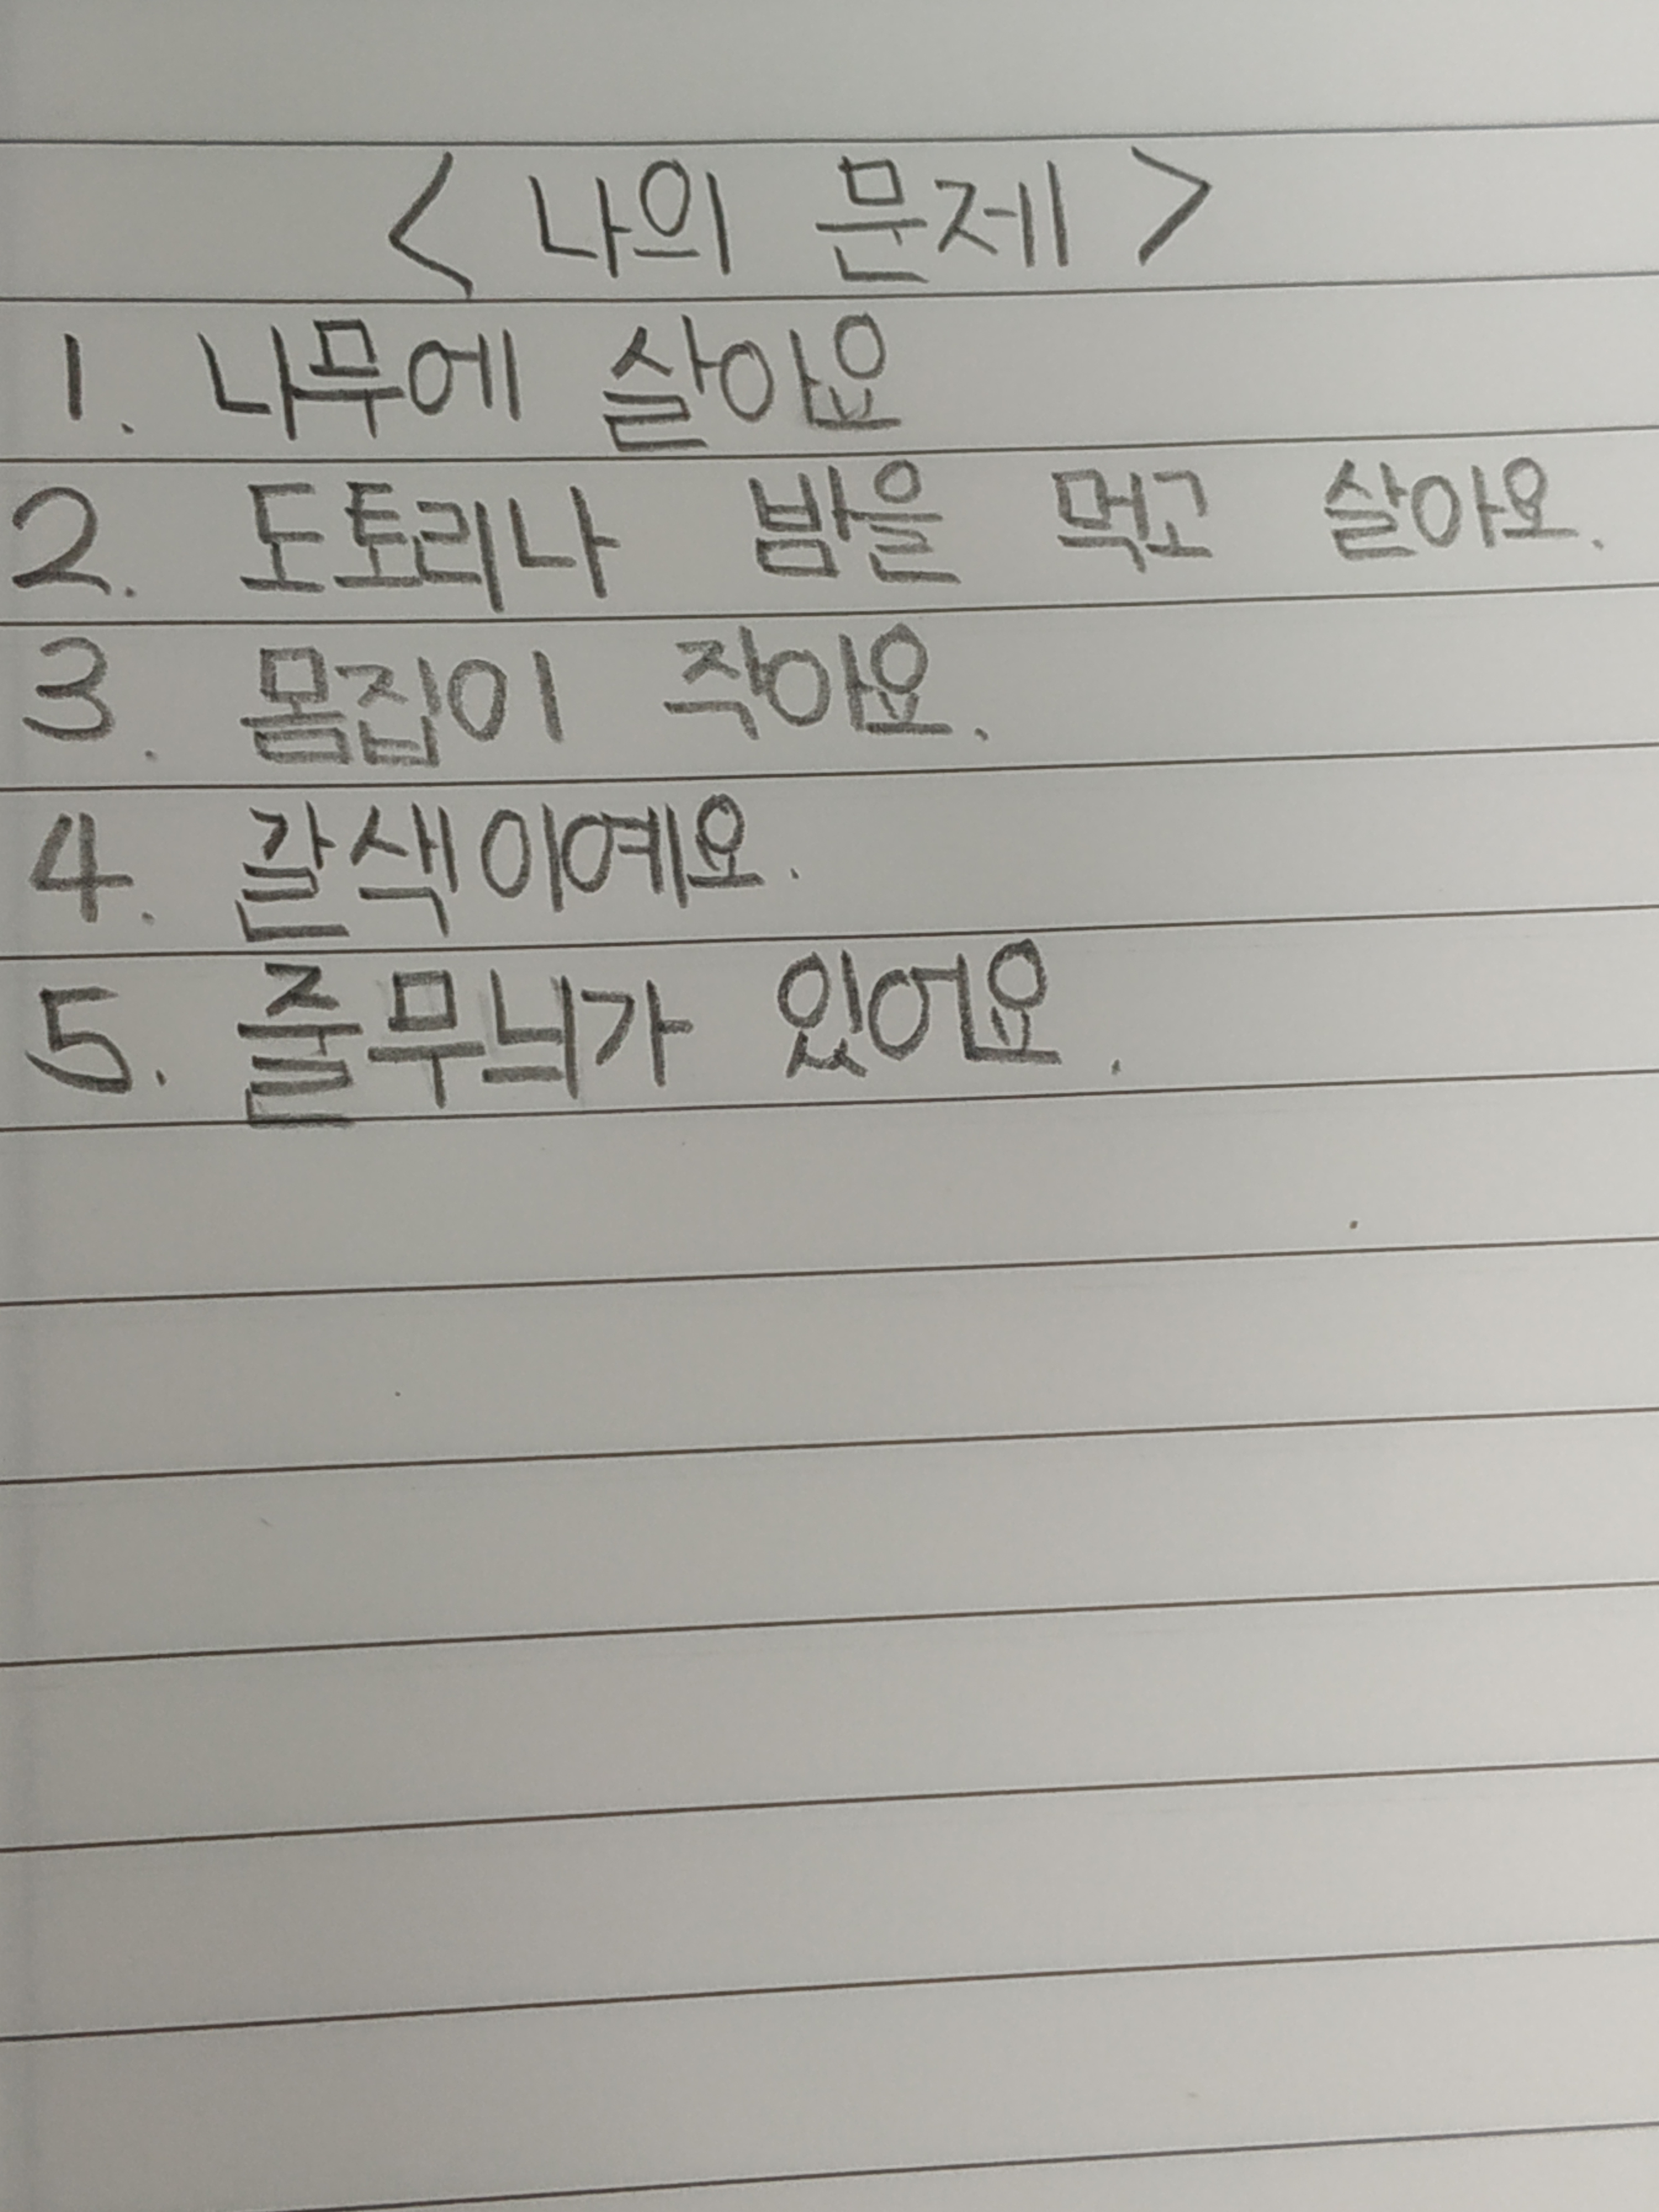 < 나의 문제 >
1. 나무에 살아요
2. 도토리나 밤을 먹고 살아요.
3. 몸집이 작아요.
4. 갈색이예요.
5. 줄무늬가 있어요.